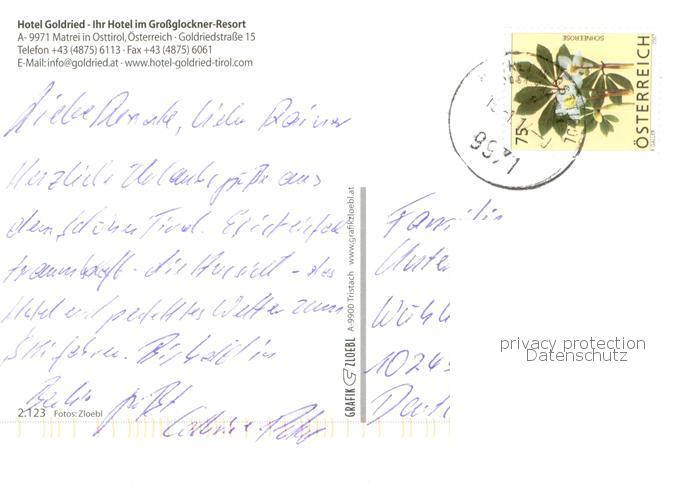 Hotel Goldried - Ihr Hotel im Großglockner-Resort
A- 9971 Matrei in Osttirol, Österreich · Goldriedstraße 15
Telefon +43 (4875) 6113 · Fax +43 (4875) 6061
E-Mail: info@goldried.at · www.hotel-goldried-tirol.com
SCHNEEROSE
75
ÖSTERREICH
9971
Liebe Renate, lieber Rainer
Herzliche Urlaubsgrüße aus
dem schönen Tirol. Es ist einfach
traumhaft - die Aussicht - das
Hotel und perfektes Wetter zum
Skifahren. Bis bald in
Berlin grüßt
Peter
2.123 Fotos: Zloebl
GRAFIK ZLOEBL A-9900 Tristach www.grafikzloebl.at
Familie
Unte
1024
privacy protection
Datenschutz